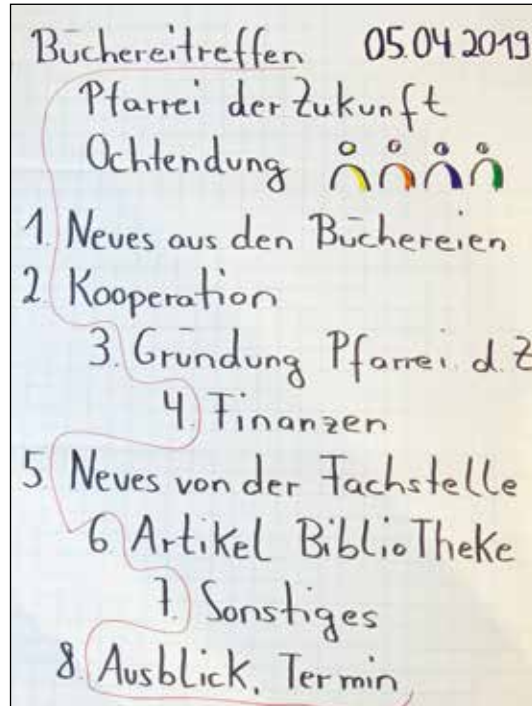 Büchereitreffen 05.04.2019
Pfarrei der Zukunft
Ochtendung
1. Neues aus den Büchereien
2. Kooperation
3. Gründung Pfarrei d. Z
4. Finanzen
5 Neues von der Fachstelle
6 Artikel BiblioTheke
7. Sonstiges
8. Ausblick, Termin